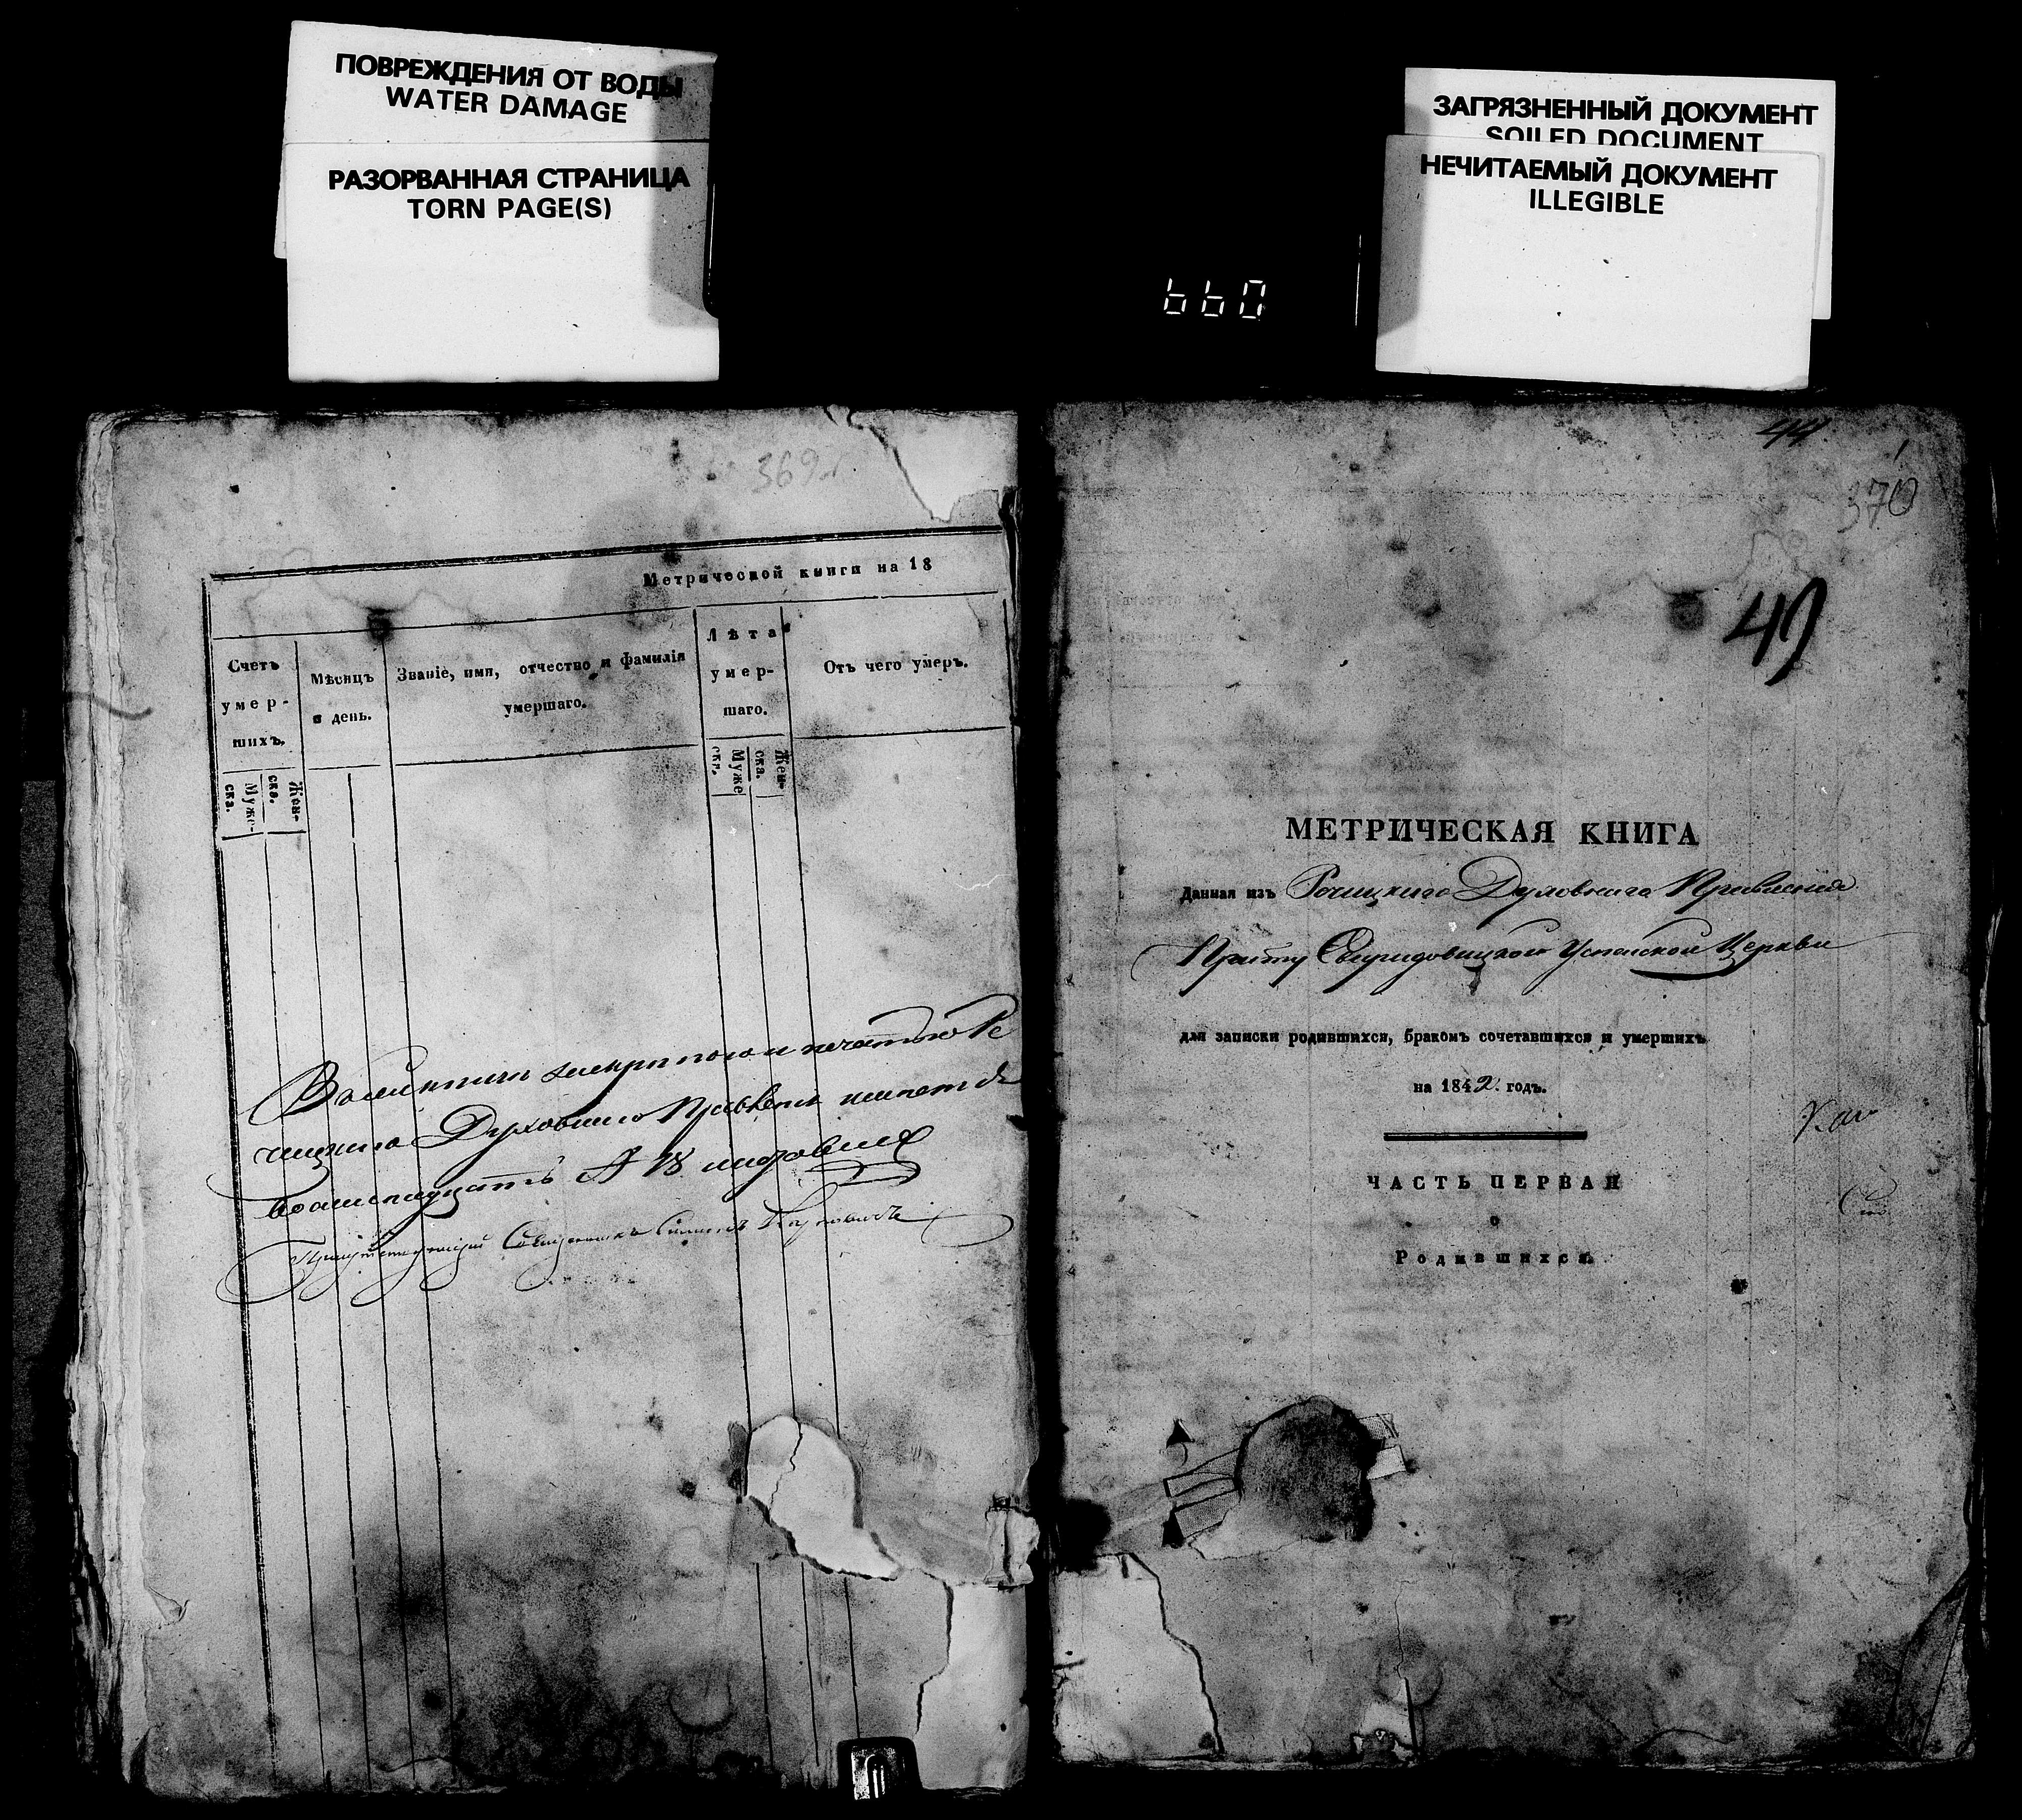 ПОВРЕЖДЕНИЯ ОТ ВОДЫ
WATER DAMAGE
РАЗОРВАННАЯ СТРАНИЦА
TORN PAGE(S)
ЗАГРЯЗНЕННЫЙ ДОКУМЕНТ
SOILED DOCUMENT
НЕЧИТАЕМЫЙ ДОКУМЕНТ
ILLEGIBLE
369
Метрической книги на 18
Счетъ умер-шихъ.
Мѣсяцъ и день.
Званіе, имя, отчество и фамилія умершаго.
Лѣта умер-шаго.
Отъ чего умеръ.
Муже-ска.
Жен-ска.
Муже ска.
Жен-ска.
скрепою и печатью Ре
чицкаго Духовнаго Правленія
восемнадцать 18 листовъ
44
370
49
МЕТРИЧЕСКАЯ КНИГА
Данная изъ Речицкаго Духовнаго Правленія
Причту Успенской Церкви
для записки родившихся, бракомъ сочетавшихся и умершихъ
на 1842 годъ.
ЧАСТЬ ПЕРВАЯ
о
Родившихся.